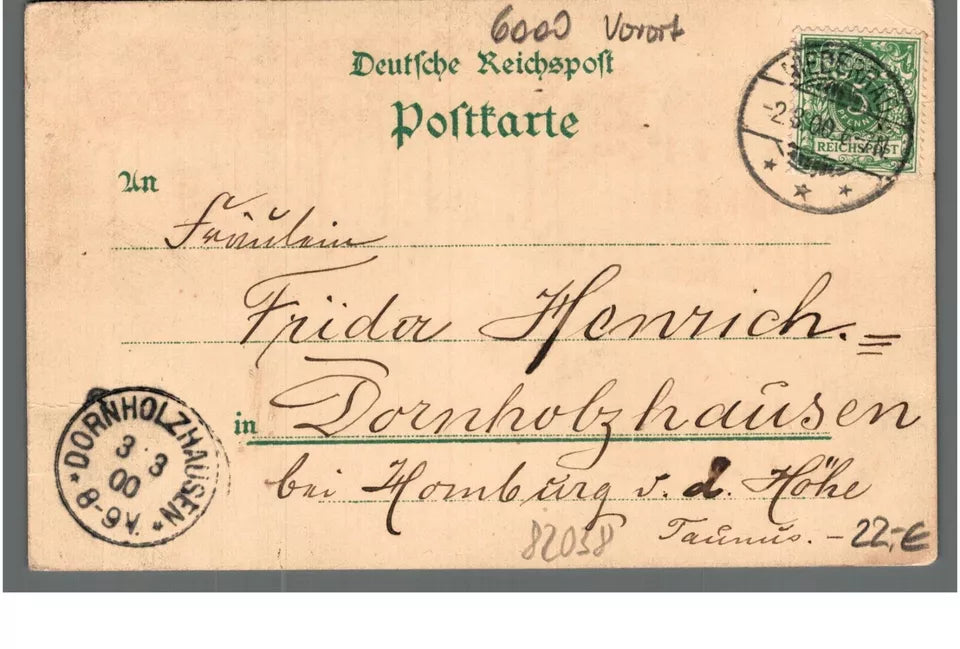 6000 Vorort
Deutsche Reichspost
Postkarte
REICHSPOST
-2.3.00
An
Fräulein
Frida Henrich.
in Dornholzhausen
bei Homburg v. d. Höhe
Taunus.
DORNHOLZHAUSEN
3 3
00
8-9V.
82038
-22,-€